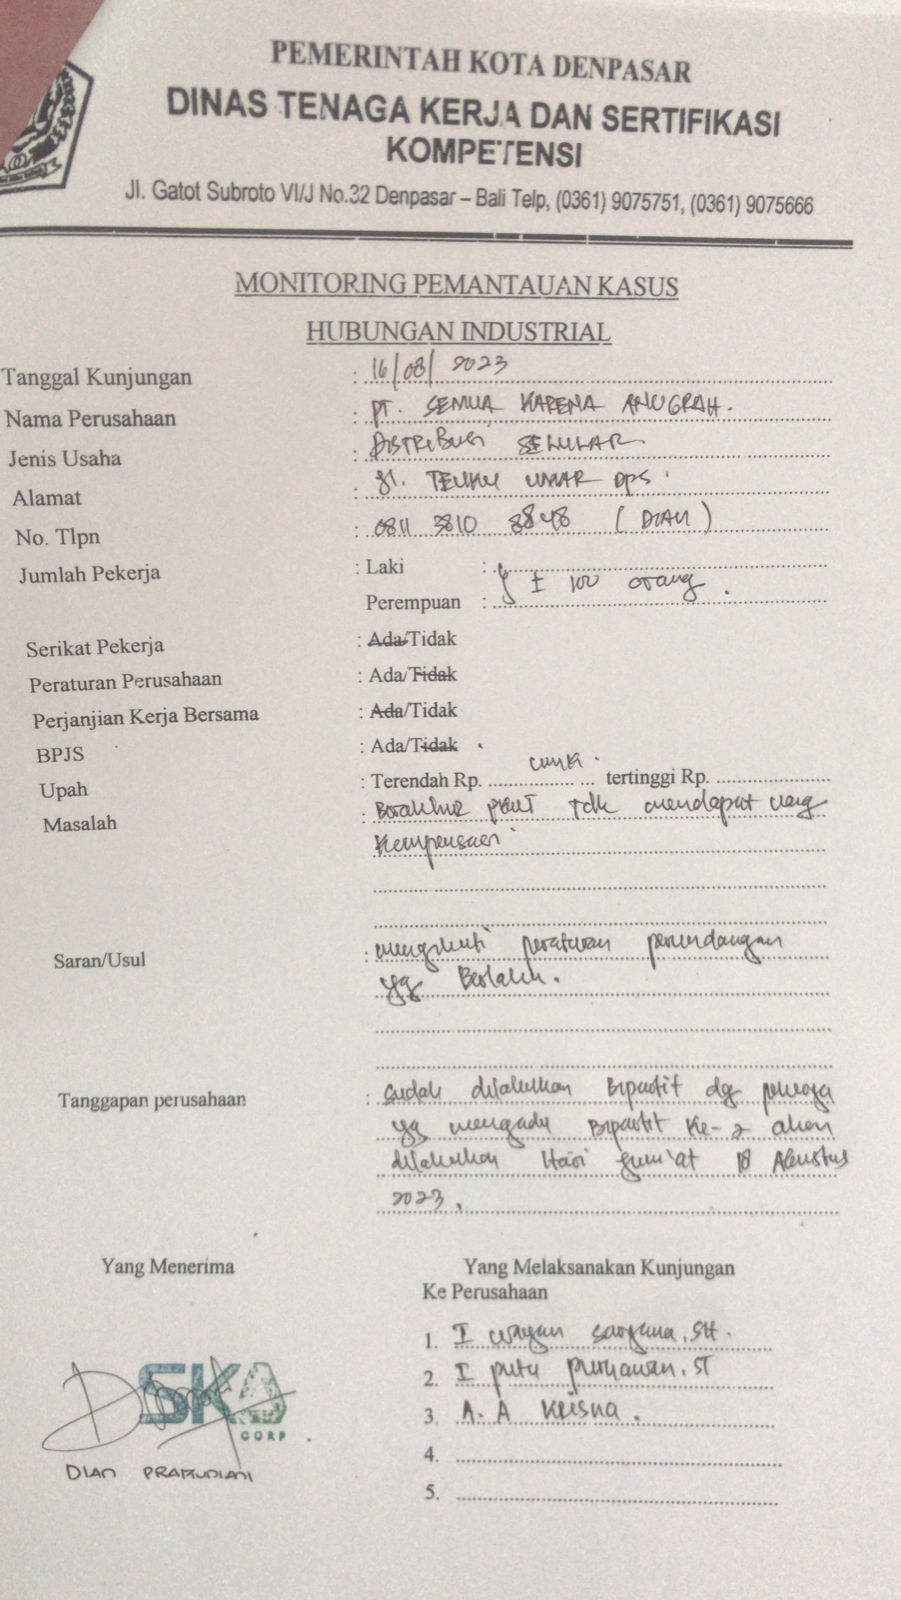 PEMERINTAH KOTA DENPASAR
DINAS TENAGA KERJA DAN SERTIFIKASI
KOMPETENSI
Jl. Gatot Subroto VI/J No.32 Denpasar – Bali Telp, (0361) 9075751, (0361) 9075666
MONITORING PEMANTAUAN KASUS
HUBUNGAN INDUSTRIAL
Tanggal Kunjungan : 16/08/2023
Nama Perusahaan : PT. SEMUA KARENA ANUGRAH.
Jenis Usaha : DISTRIBUSI SELULAR
Alamat : Jl. TEUKU UMAR DPS.
No. Tlpn : 0811 3810 8848 (DIAN)
Jumlah Pekerja : Laki :
Perempuan : ± 100 orang.
Serikat Pekerja : Ada/Tidak
Peraturan Perusahaan : Ada/Tidak
Perjanjian Kerja Bersama : Ada/Tidak
BPJS : Ada/Tidak
Upah : Terendah Rp. UMK. tertinggi Rp.
Masalah : Berakhir PKWT tdk mendapat uang
kompensasi.
Saran/Usul : mengikuti peraturan perundangan
yg Berlaku.
Tanggapan perusahaan : sudah dilakukan Bipartit dg pekerja
yg mengadu Bipartit Ke-2 akan
dilakukan Hari Jum'at 18 Agustus
2023.
Yang Menerima
Yang Melaksanakan Kunjungan
Ke Perusahaan
1. I Wayan Sarjana, SH.
2. I putu purnawan, ST
3. A. A Krisna.
4.
5.
SKA
CORP
DIAN PRAMUDIANI